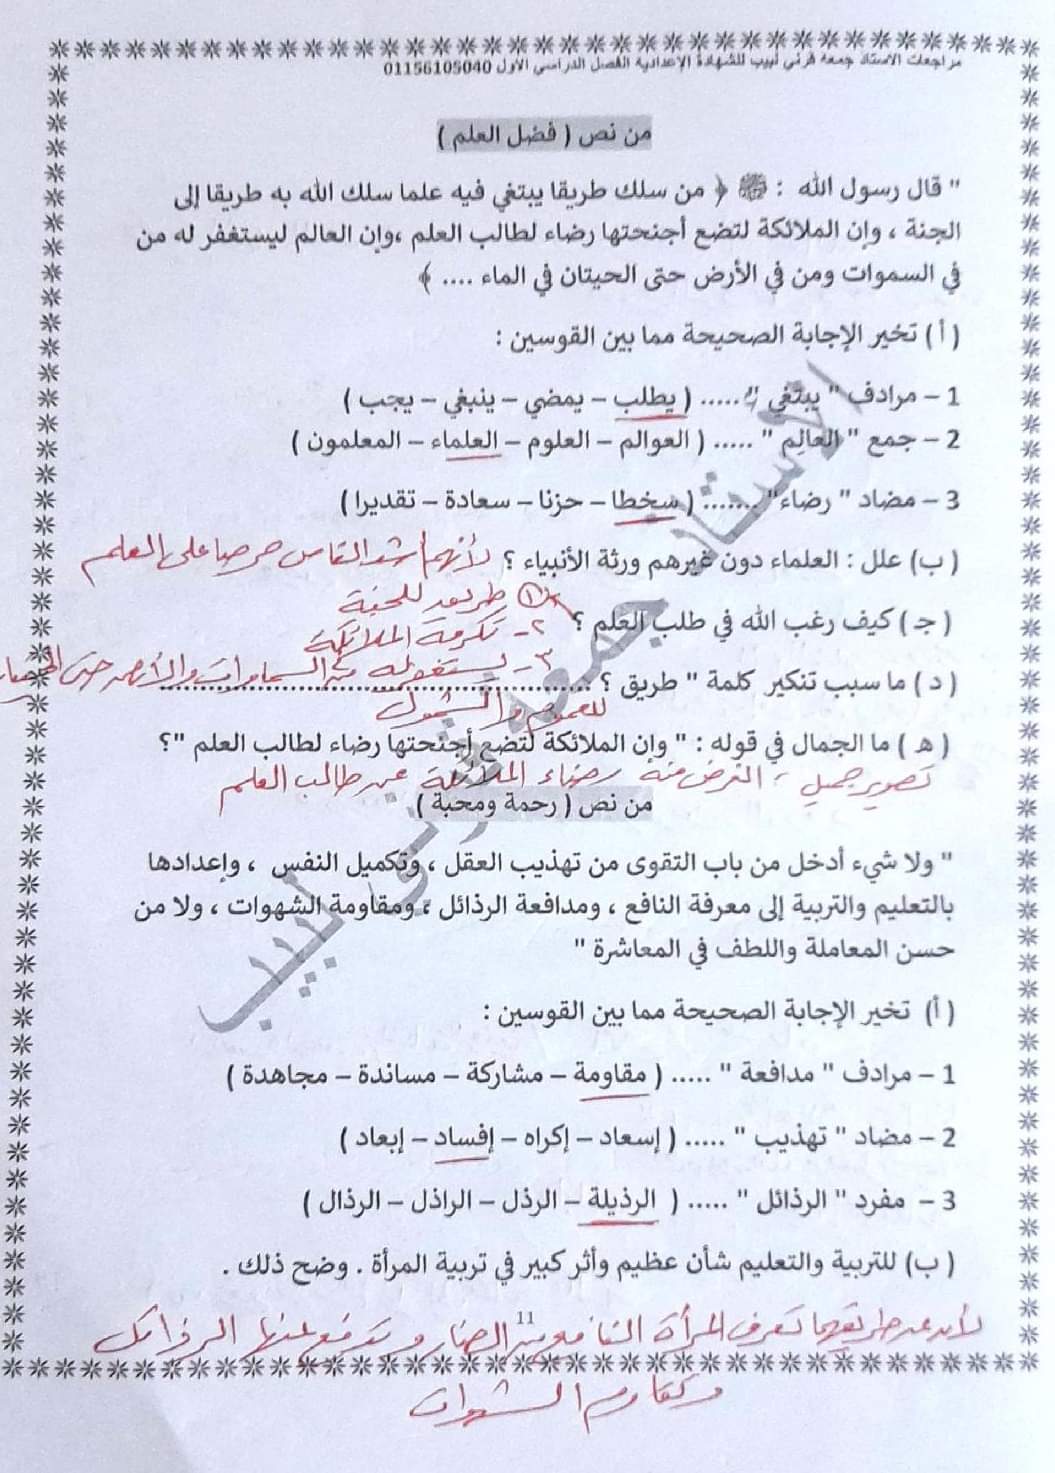 مراجعات الاستاذ جمعة قرني لبيب للشهادة الإعدادية الفصل الدراسي الأول 01156105040
من نص ( فضل العلم )
" قال رسول الله ﷺ : ﴿ من سلك طريقا يبتغي فيه علما سلك الله به طريقا إلى
الجنة ، وإن الملائكة لتضع أجنحتها رضاء لطالب العلم ،وإن العالم ليستغفر له من
في السموات ومن في الأرض حتى الحيتان في الماء .... ﴾
( أ ) تخير الإجابة الصحيحة مما بين القوسين :
1 – مرادف " يبتغي " ..... ( يطلب – يمضي – ينبغي – يجب )
2 – جمع " العالِم " ..... ( العوالم – العلوم – العلماء – المعلمون )
3 – مضاد " رضاء" ....... ( سخطا – حزنا – سعادة – تقديرا )
( ب ) علل : العلماء دون غيرهم ورثة الأنبياء ؟ لأنهم أشد الناس حرصا على العلم
١- طريق للجنة
( جـ ) كيف رغب الله في طلب العلم ؟ ٢- تكرمه الملائكة
٣- يستغفر له من في السماوات والأرض حتى الحيتان
( د ) ما سبب تنكير كلمة " طريق ؟ ..............................
للعموم والشمول
( هـ ) ما الجمال في قوله : " وإن الملائكة لتضع أجنحتها رضاء لطالب العلم "؟
تصوير جميل ، الغرض منه رضاء الملائكة عن طالب العلم
من نص ( رحمة ومحبة )
" ولا شيء أدخل من باب التقوى من تهذيب العقل ، وتكميل النفس ، وإعدادها
بالتعليم والتربية إلى معرفة النافع ، ومدافعة الرذائل ، ومقاومة الشهوات ، ولا من
حسن المعاملة واللطف في المعاشرة "
( أ ) تخير الإجابة الصحيحة مما بين القوسين :
1 – مرادف " مدافعة " ..... ( مقاومة – مشاركة – مساندة – مجاهدة )
2 – مضاد " تهذيب " ..... ( إسعاد – إكراه – إفساد – إبعاد )
3 – مفرد " الرذائل " ..... ( الرذيلة – الرذل – الراذل – الرذال )
( ب ) للتربية والتعليم شأن عظيم وأثر كبير في تربية المرأة . وضح ذلك .
11
لأن عن طريقهما تعرف المرأة النافع من الضار وتدفع عنها الرذائل
وتقاوم الشهوات
الأستاذ جمعة قرني لبيب